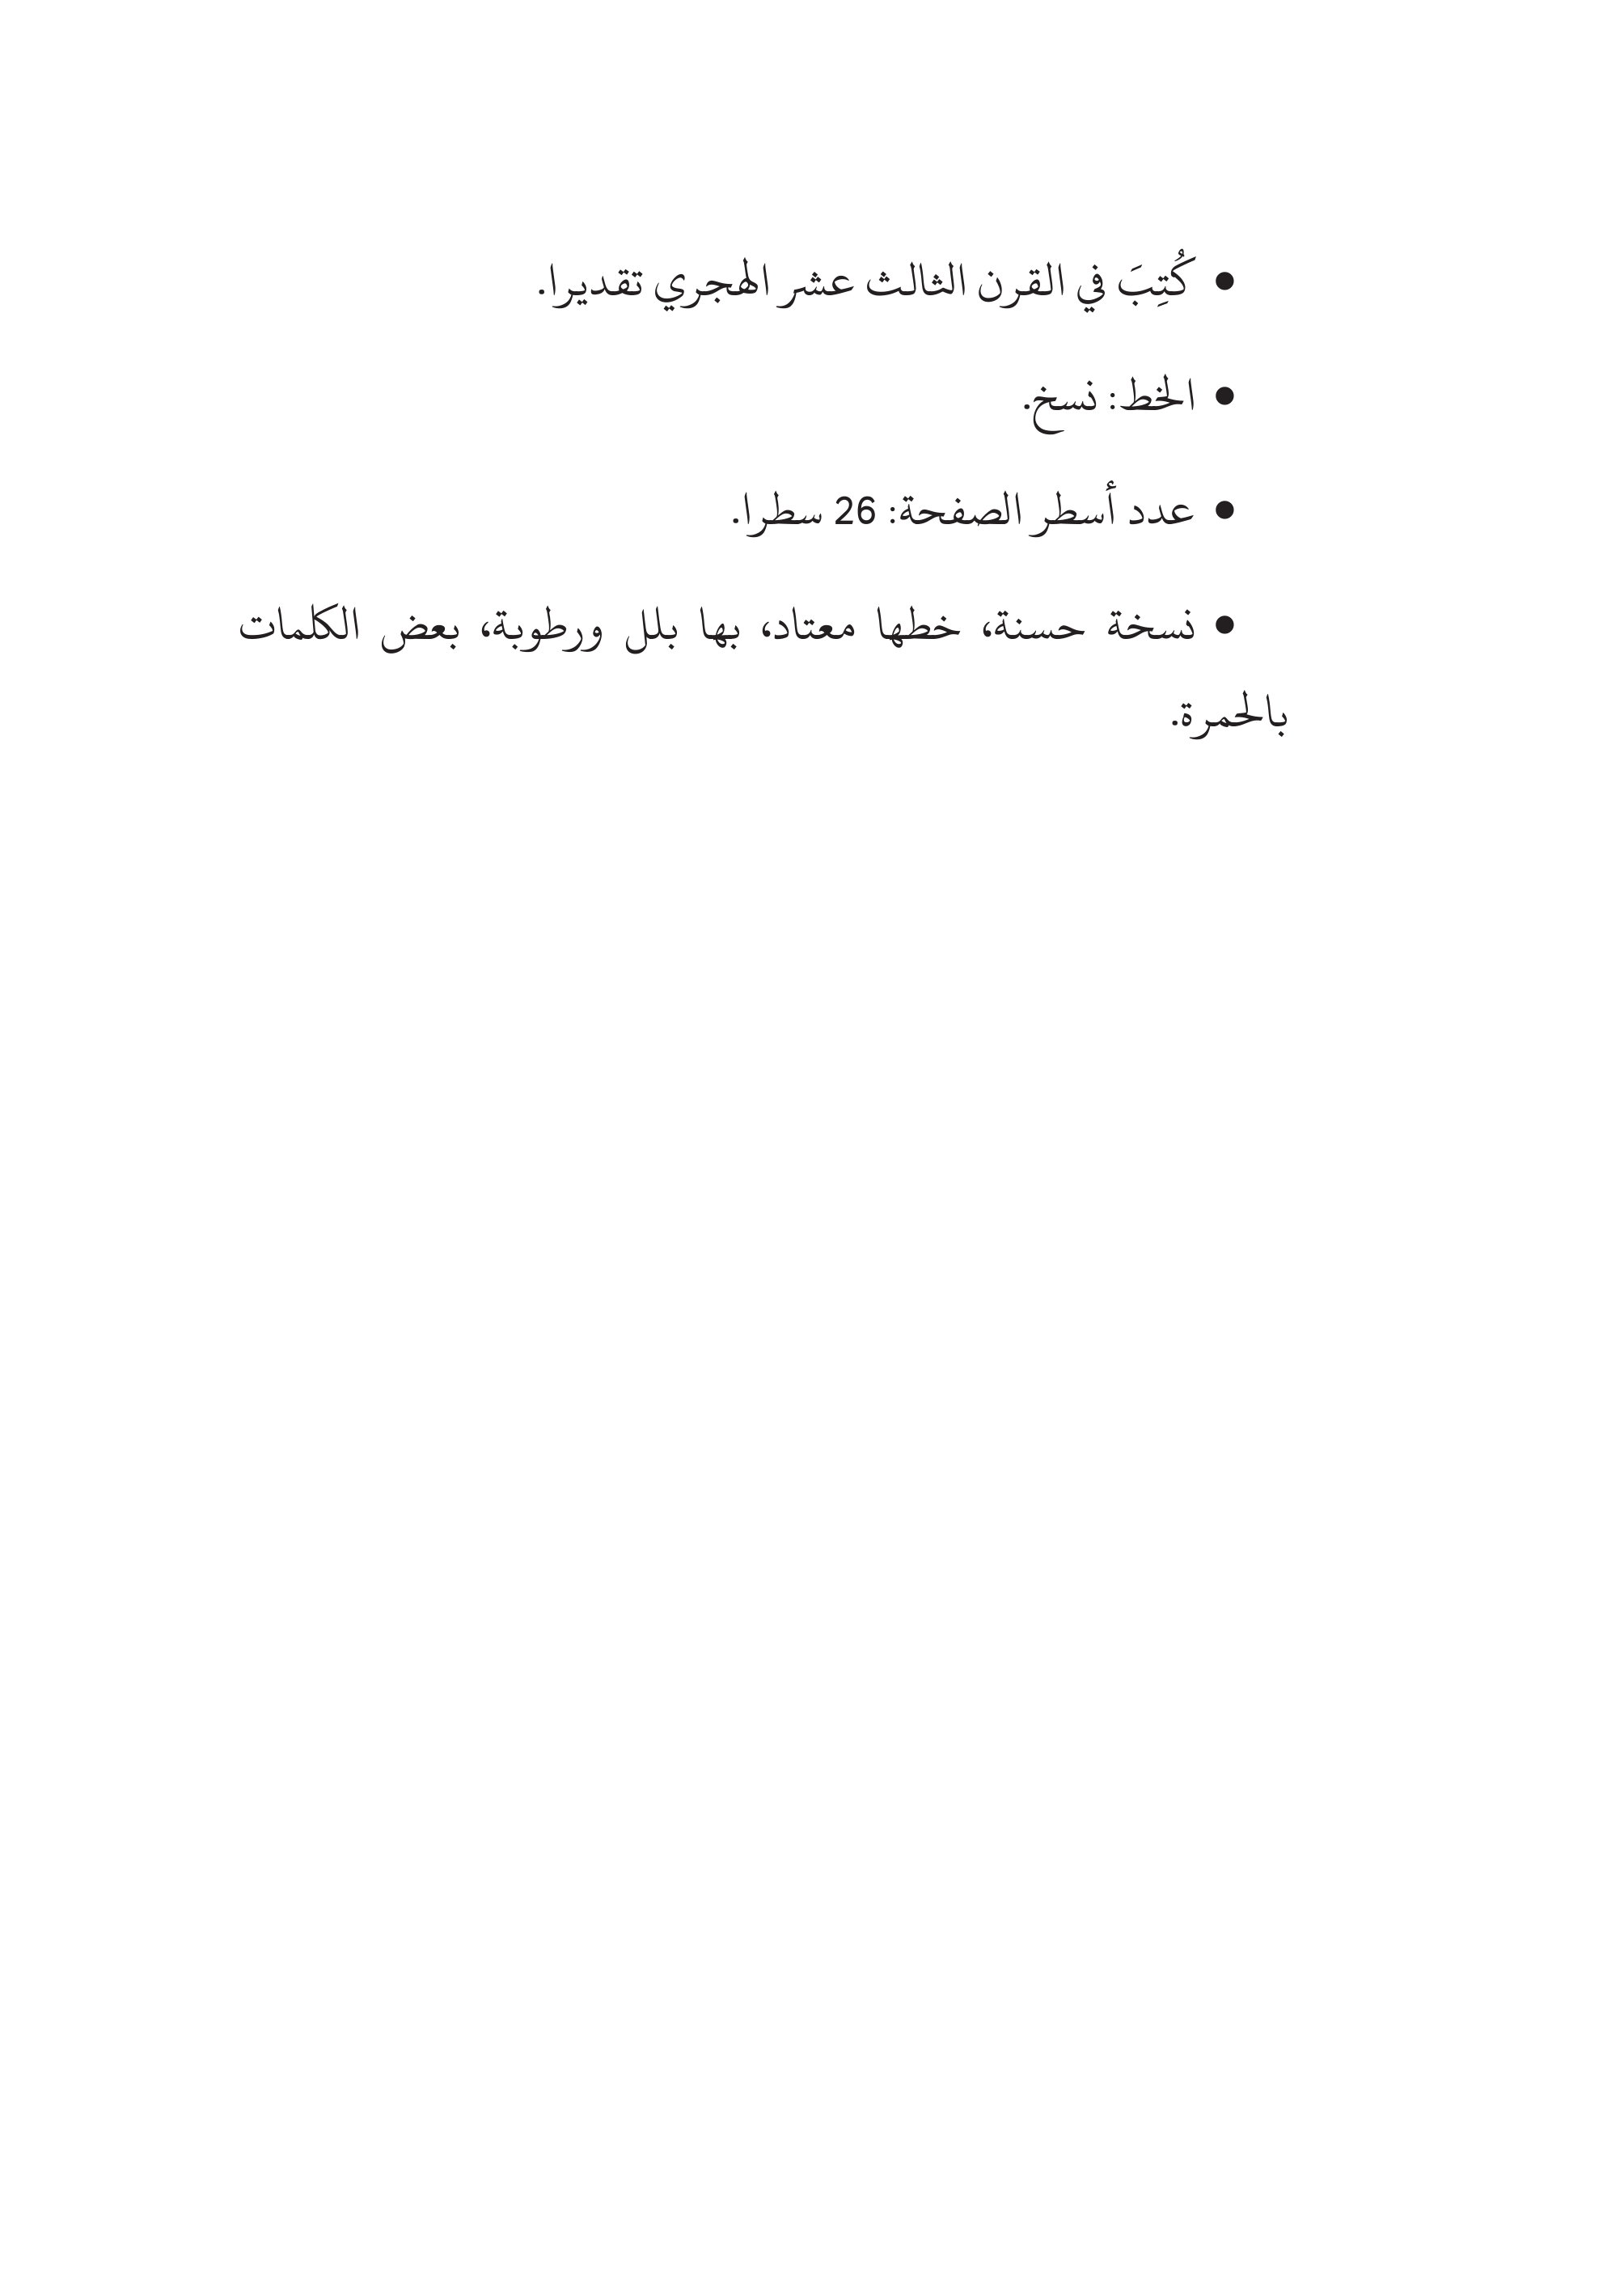 • كُتِبَ في القرن الثالث عشر الهجري تقديرا.
• الخط: نسخ.
• عدد أسطر الصفحة: 26 سطرا.
• نسخة حسنة، خطها معتاد، بها بلل ورطوبة، بعض الكلمات
بالحمرة.